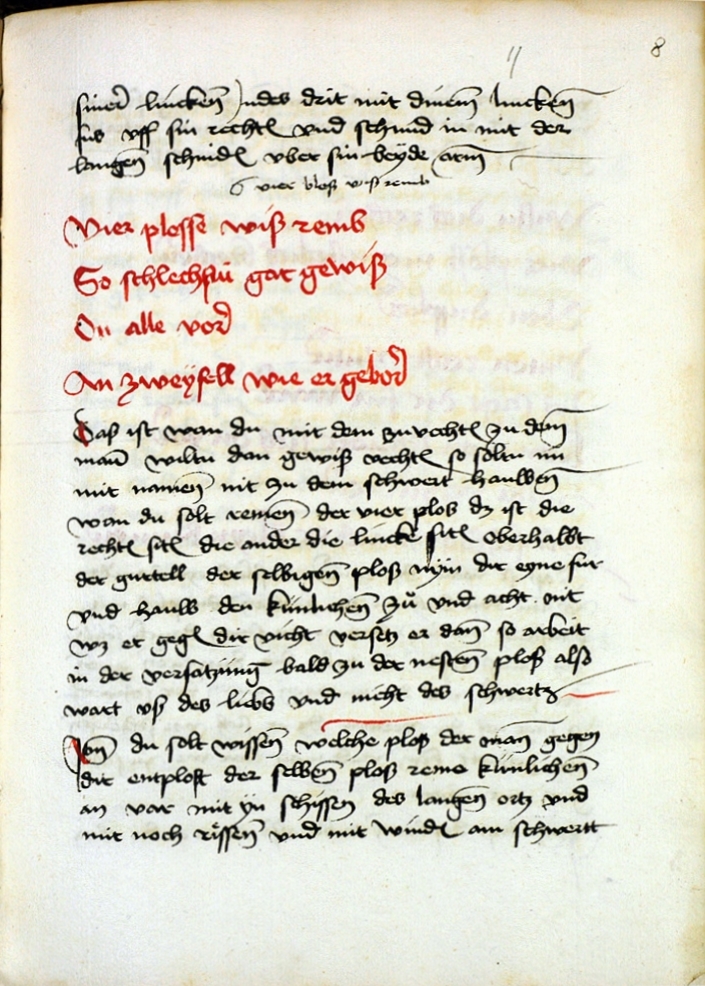 8
siner lincken Indes drit mit dinem lincken
fus vff sin recht und schnid in mit der
langen schnid vber sin beyde arm
6 vier blosß wiß remb
Vier plosse wiß remb
So schlechstu gar gewiß
On alle vor
An zweyfell wie er gebor
Das ist wan du mit dem zuvecht zu dem
man wiltu dan gewiß vecht so soltu im
mit namen nit zu dem schwert hauwen
wan du solt remen der vier plos dz ist die
recht sit die ander die lincke sit oberhalbt
der gurtell der selbigen ploß nym dir eyne fur
vnd hauw den künlichen zů vnd acht nit
wz er geg dir vicht versetz er dan so arbeit
in der versatzung bald zu der nesten ploß also
wart vß des liebs vnd nicht des schwertz
du solt wissen welche ploß der man gegen
dir entplost der selben ploß reme künlichen
an var mit yn schissen des langen ortz vnd
mit noch rissen vnd mit wind am schwertt